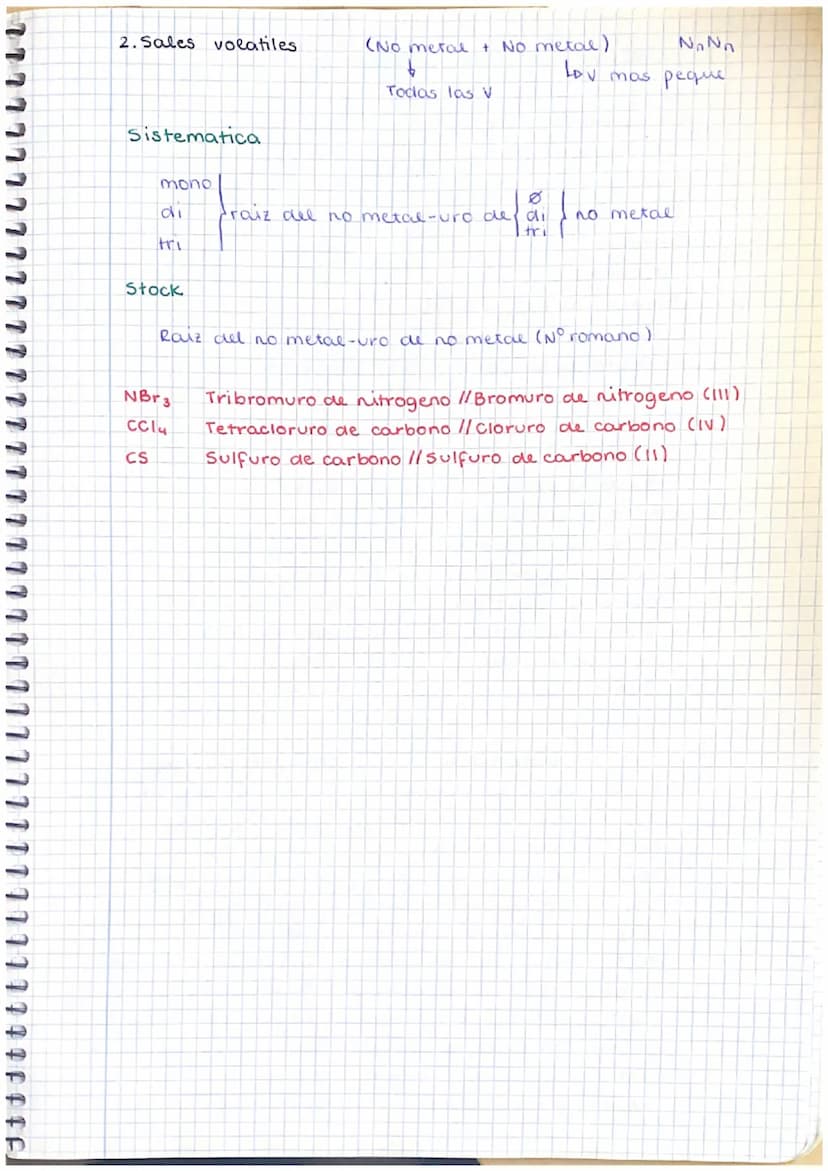 2. Sales volatiles (No metal + No metal) NnNn
↓ ↳ v mas peque
Todas las v
Sistematica
mono
di } raiz del no metal-uro de { Ø di tri } no metal
tri
Stock
Raiz del no metal-uro de no metal (Nº romano)
NBr₃ Tribromuro de nitrogeno // Bromuro de nitrogeno (III)
CCl₄ Tetracloruro de carbono // Cloruro de carbono (IV)
CS Sulfuro de carbono // Sulfuro de carbono (II)